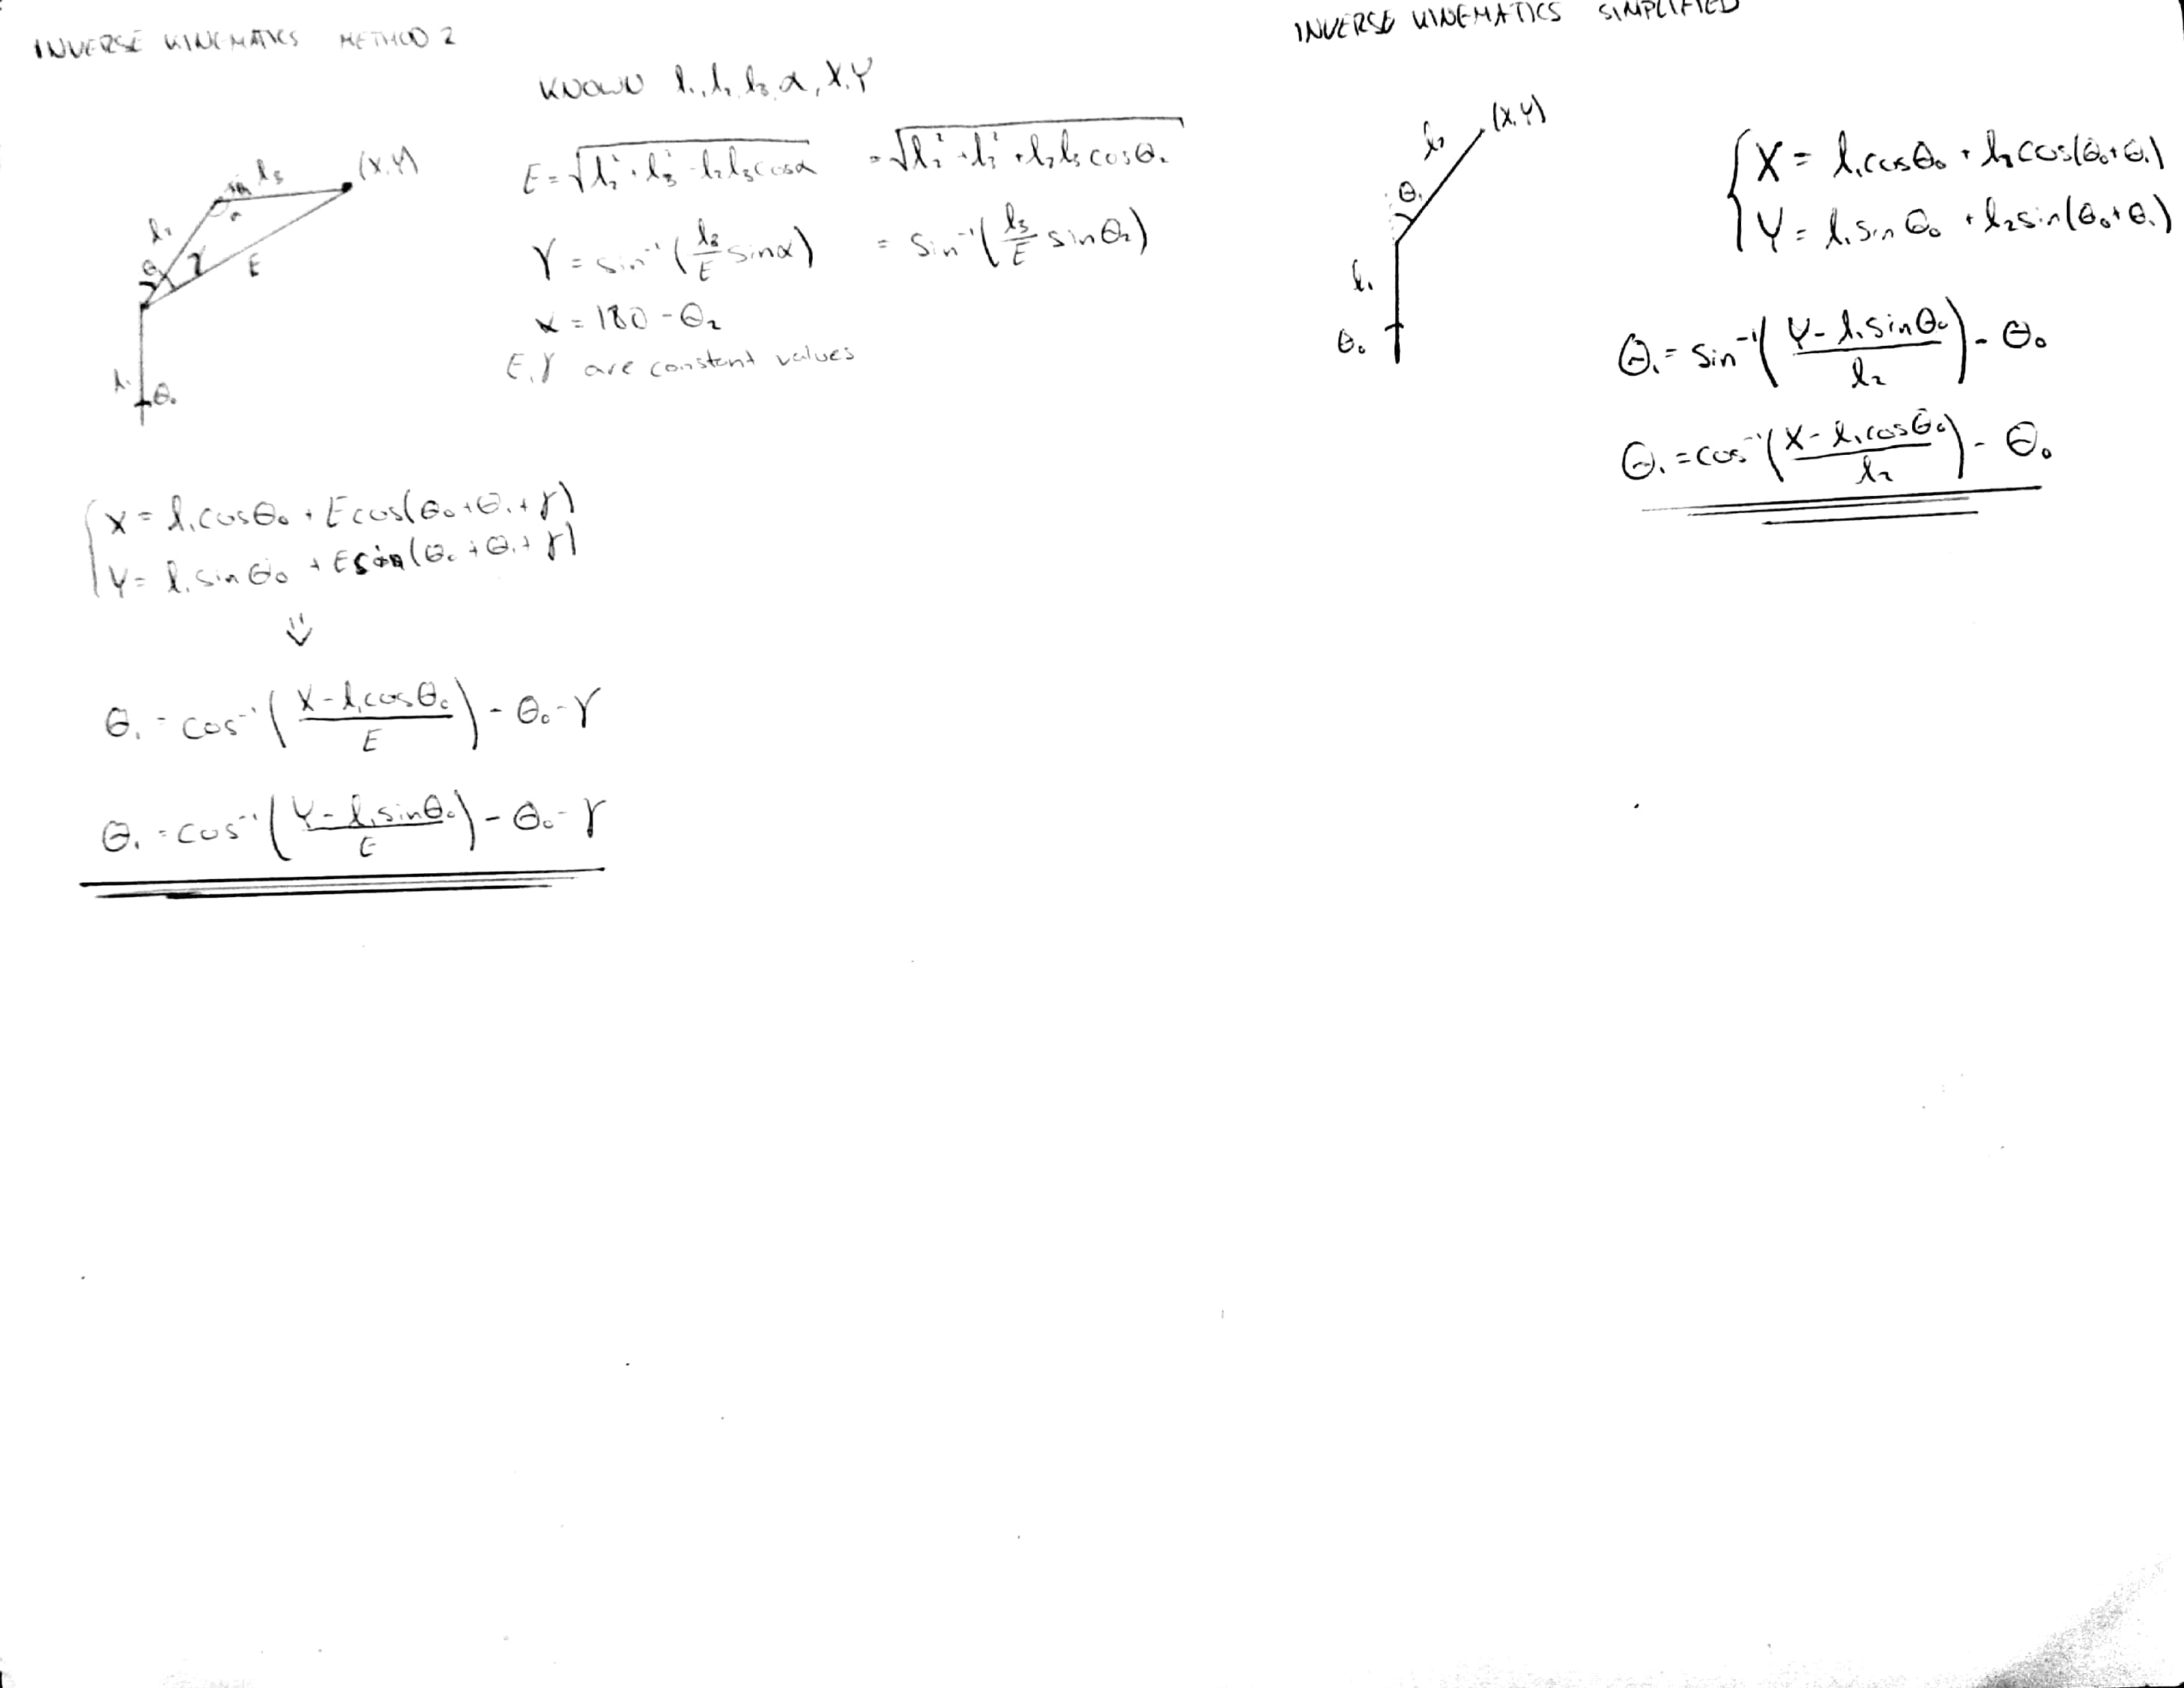 INVERSE KINEMATICS METHOD 2
KNOWN l₁, l₂, l₃, α, X, Y
E = √(l₂² + l₃² - l₂l₃cosα) = √(l₂² + l₃² + l₂l₃cosθ₂
γ = sin⁻¹(l₃/E sinα) = sin⁻¹(l₃/E sinθ₂)
α = 180 - θ₂
E, γ are constant values
(X,Y)
l₃
l₂
α
θ₁ γ E
l₁
θ₀
X = l₁cosθ₀ + Ecos(θ₀+θ₁+γ)
Y = l₁sinθ₀ + Esin(θ₀+θ₁+γ)
⇓
θ₁ = cos⁻¹((X - l₁cosθ₀)/E) - θ₀ - γ
θ₁ = cos⁻¹((Y - l₁sinθ₀)/E) - θ₀ - γ
INVERSE KINEMATICS SIMPLIFIED
(X,Y)
l₂
θ₁
l₁
θ₀
X = l₁cosθ₀ + l₂cos(θ₀+θ₁)
Y = l₁sinθ₀ + l₂sin(θ₀+θ₁)
θ₁ = sin⁻¹((Y - l₁sinθ₀)/l₂) - θ₀
θ₁ = cos⁻¹((X - l₁cosθ₀)/l₂) - θ₀